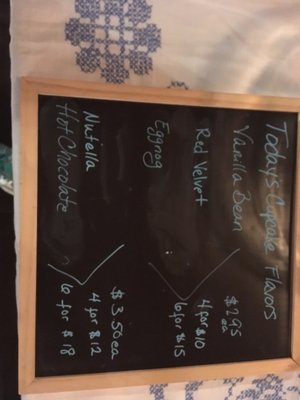 Todays Cupcake Flavors
Vanilla Bean
Red Velvet
Eggnog
$2.95
ea
4 for $10
6 for $15
Nutella
Hot Chocolate
$3.50 ea
4 for $12
6 for $18